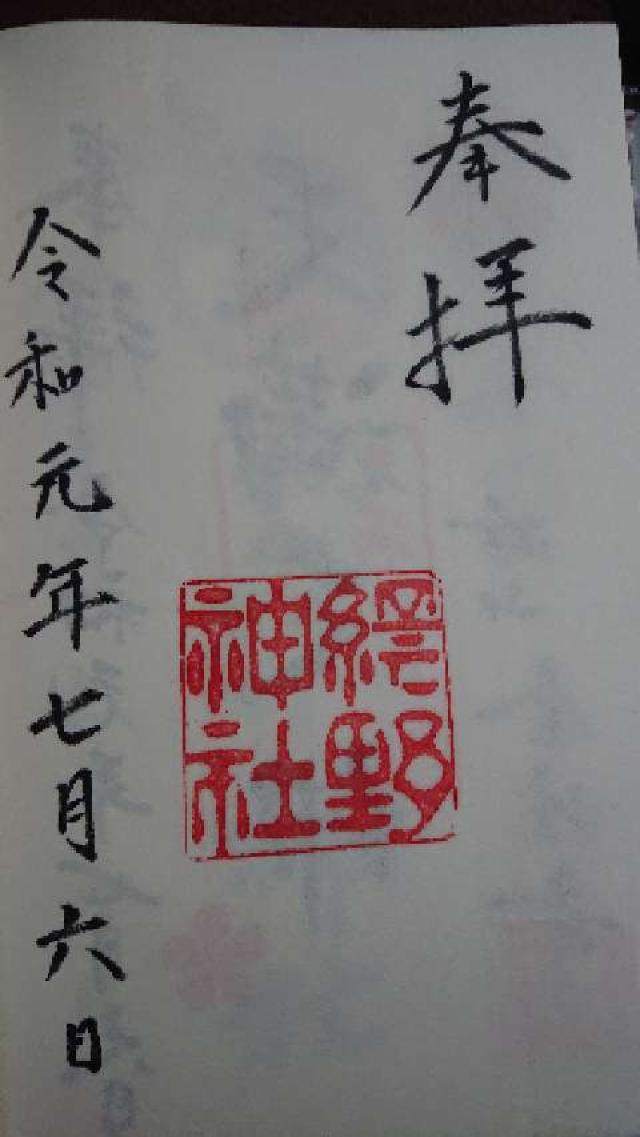 奉拝
網野神社
令和元年七月六日